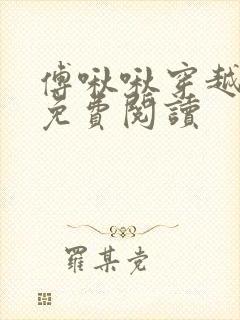 傅啾啾穿越
免費閱讀
羅某党